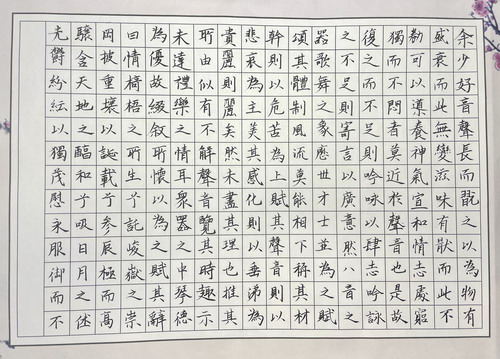 余少好音聲長而翫之以為物有
盛衰而此無變滋味有猒而此不
勌可以導養神氣宣和情志處窮
獨而不悶者莫近於聲音也是故
復之而不足則吟詠以肆志吟詠
之不足則寄言以廣意然八音之
器歌舞之象歷世才士並為之賦
頌其體制風流莫不相襲稱其材
幹則以危苦為上賦其聲音則以
悲哀為主美其感化則以垂涕為
貴麗則麗矣然未盡其理也推其
所由似有不解聲音覽其旨趣亦
未達禮樂之情也眾器之中琴德
最優故綴敘所懷以為之賦其辭
曰惟椅梧之所生兮託峻嶽之崇
岡披重壤以誕載兮參辰極而高
驤含天地之醇和兮吸日月之休
光鬱紛紜以獨茂慰永服御而不